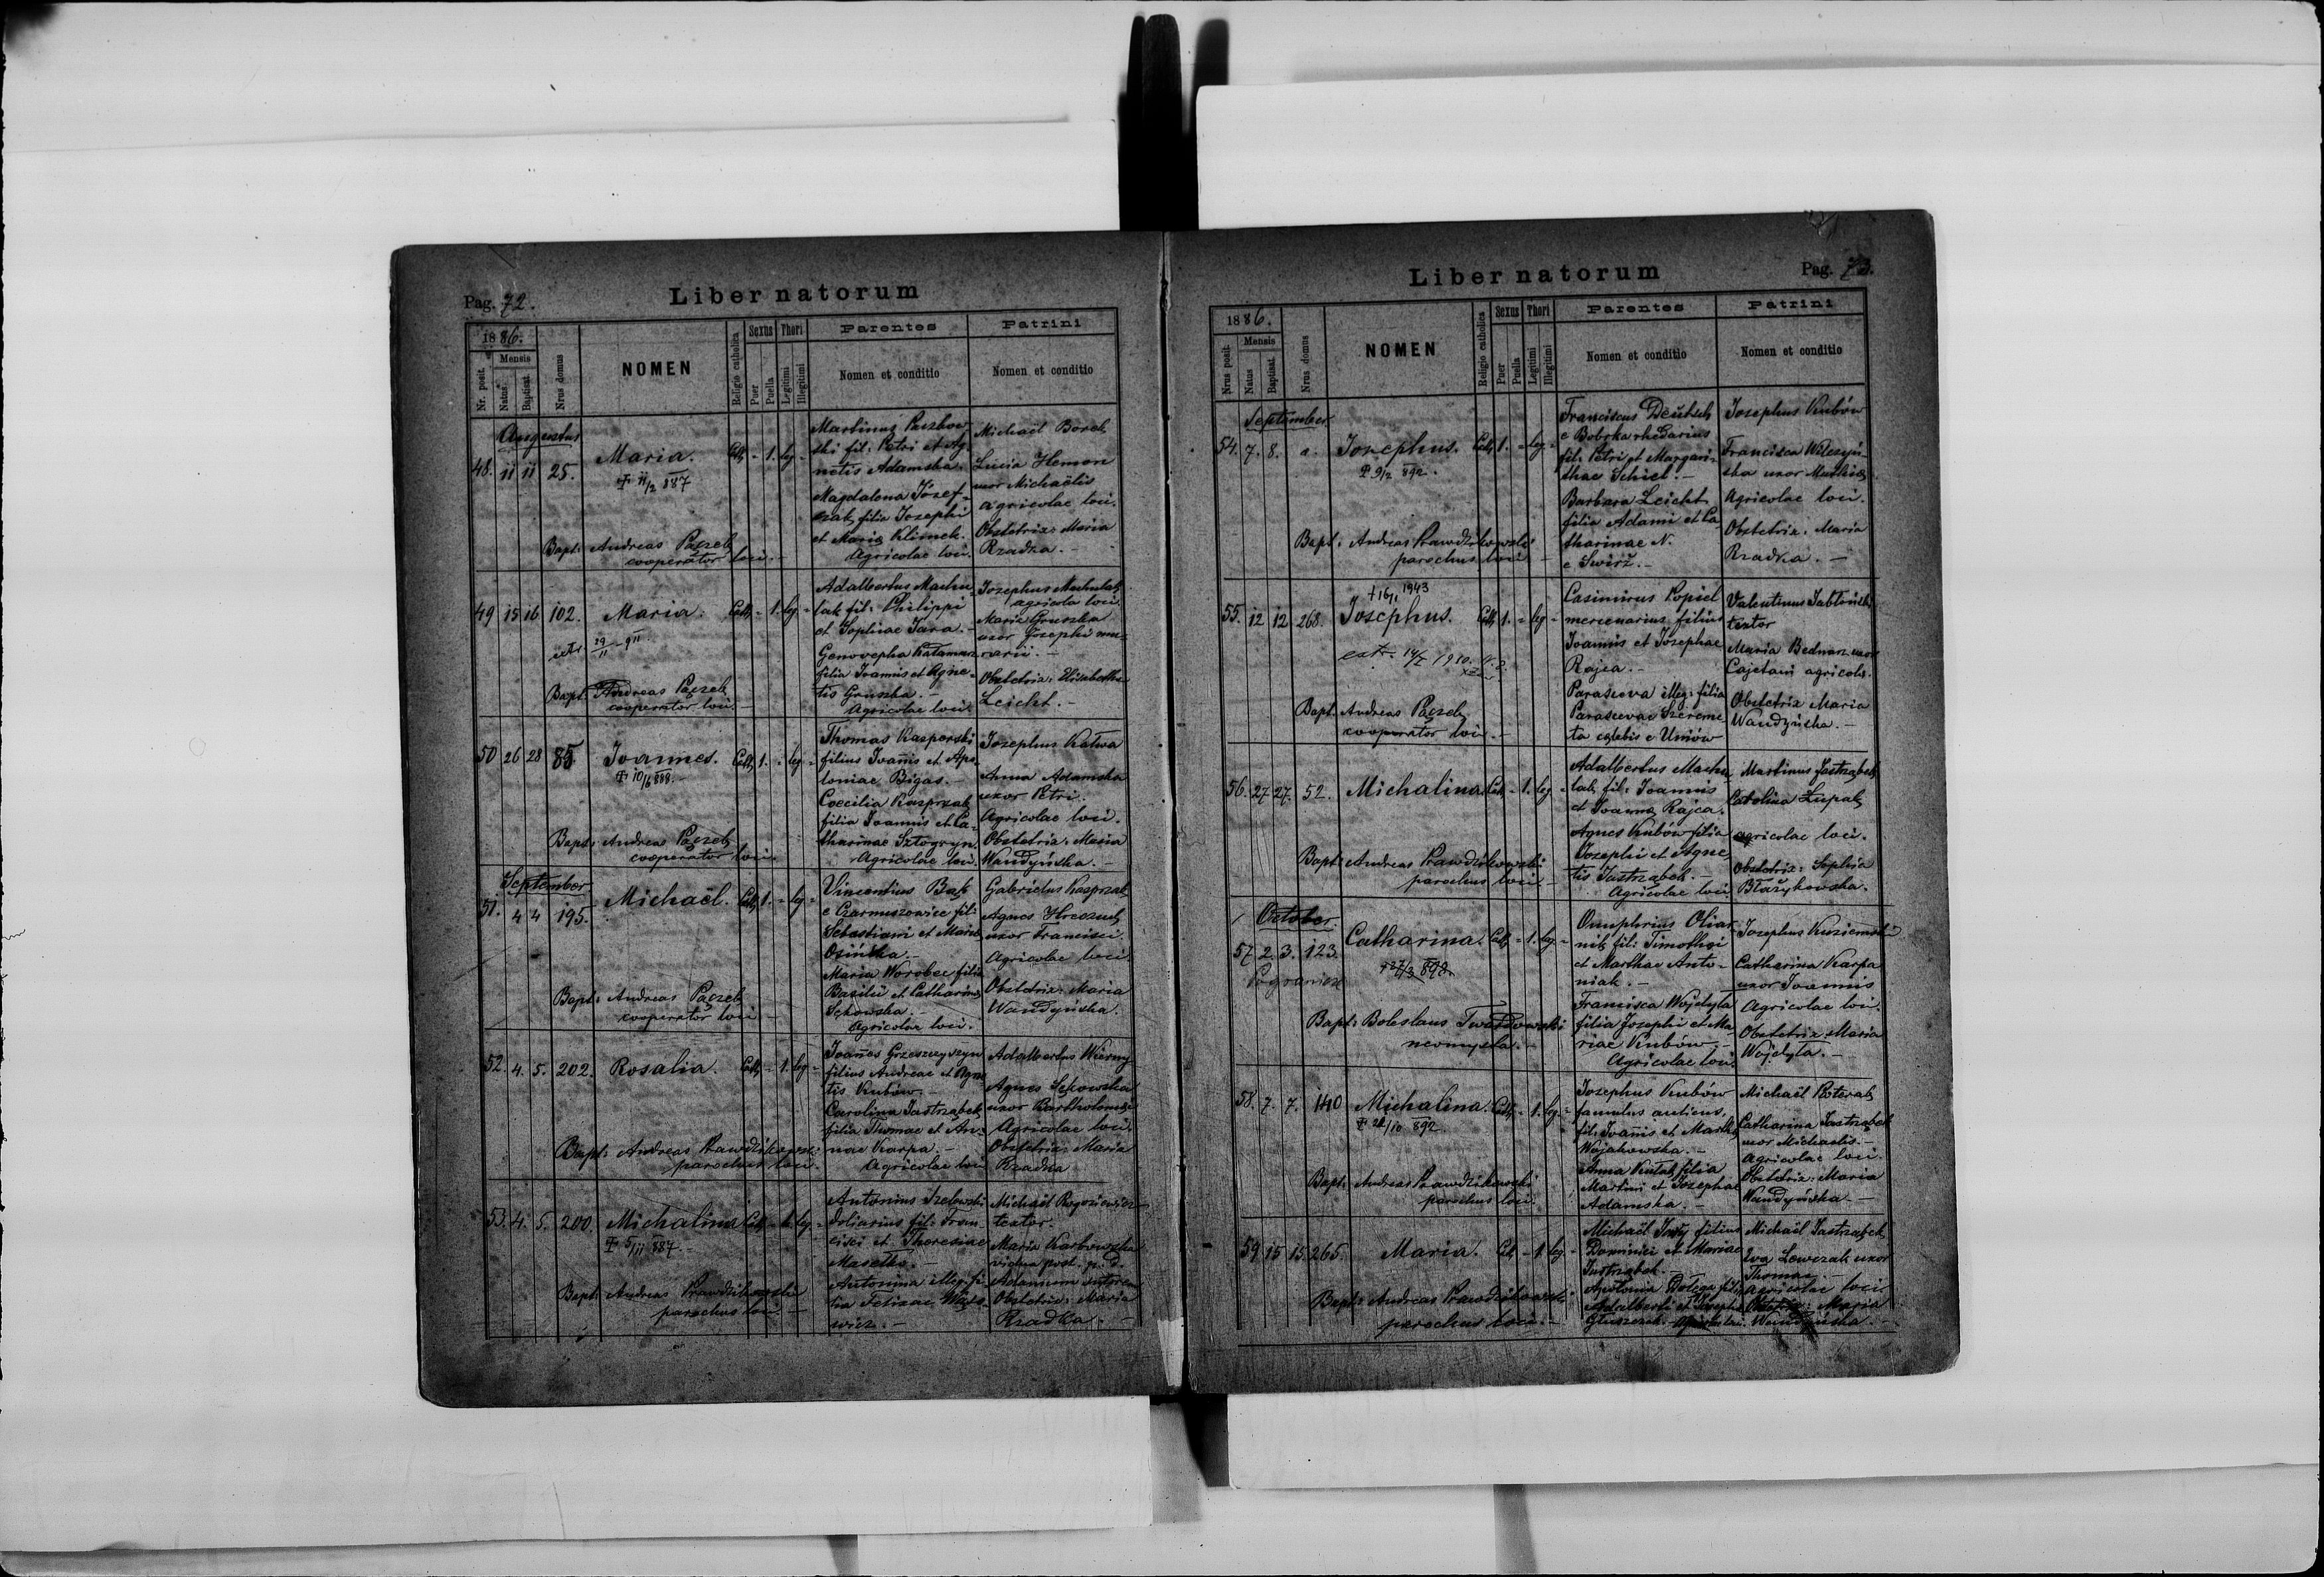 Liber natorum
Pag. 72.
1886.
Mensis
Nr. posit.
Natus
Baptisat.
Nrus domus
NOMEN
Religio catholica
Sexus
Puer
Puella
Thori
Legitimi
Illegitimi
Parentes
Nomen et conditio
Patrini
Nomen et conditio
Augustus
48. 11 11 25. Maria. Cath - 1. leg -
11/2 887
Bapt: Andreas Pączek
cooperator loci.
Martinus
ski fil: Petri et Ag-
netis Adamska.
Magdalena Józef-
czak filia Josephi
et Maria Klimek.
Agricolae loci.
Michaël Borek
Lucia Hemon
uxor Michaëlis
agricolae loci.
Obstetrix: Maria
Rzadka. -
49 15 16 102. Maria. Cath - 1. leg -
Bapt: Andreas Pączek
cooperator loci. -
Adalbertus Machu-
lak fil: Philippi
et Sophiae Jara. -
Genovepha
filia Joannis et Agne-
tis Gruszka. -
Agricolae loci.
Josephus Machulak
agricola loci.
Maria Gruszka
uxor Josephi mu-
rarii. -
Obstetrix: Elisabetha
Leicht. -
50 26 28 85. Joannes. Cath 1. - leg -
10/6 888. -
Bapt: Andreas Pączek
cooperator loci.
Thomas Kasperski
filius Joanis et Apo-
loniae Bigas. -
Coecilia Kasprzak
filia Joannis et Ca-
tharinae Sztogryn.
Agricolae loci.
Josephus Kalwa
Anna Adamska
uxor Petri.
Agricolae loci.
Obstetrix: Maria
Wandyńska. -
September
51. 4 4 195. Michaël. Cath 1. - leg -
Bapt: Andreas Pączek
cooperator loci -
Vincentius Bąk
e Czarnuszowice fil:
Sebastiani et Maria
Osińska. -
Maria Worobec filia
Basilii et Catharina
Sękowska. -
Agricolae loci.
Gabrielus Kasprzak
Agnes Hreczuch
uxor Francisci.
Agricolae loci
Obstetrix: Maria
Wandyńska.
52. 4. 5. 202. Rosalia. Cath - 1. leg -
Bapt: Andreas Prawdzikowski
parochus loci.
Joanes Grzeszczyszyn
filius Andreae et Agne
tis Kubów. -
Carolina Jastrząbek
filia Thomae et An-
nae Karpa. -
Agricolae loci
Adalbertus Wierny
Agnes Sękowska
uxor Bartholomei
Agricolae loci.
Obstetrix: Maria
Rzadka
53. 4. 5. 200. Michalina Cath - 1. leg -
5/11 887. -
Bapt: Andreas Prawdzikowski
parochus loci -
Antonius Szelewski
doliarius fil: Fran-
cisci et Theresiae
Masełko. -
Antonina illeg: fi-
lia Felixae
wicz. -
Michaël Rogoziewicz
textor.
Maria Karbowska
vidua post. p. d.
Adamum
Obstetrix: Maria
Rzadka. -
Liber natorum
Pag. 73.
1886.
Mensis
Nrus posit.
Natus
Baptisat.
Nrus domus
NOMEN
Religio catholica
Sexus
Puer
Puella
Thori
Legitimi
Illegitimi
Parentes
Nomen et conditio
Patrini
Nomen et conditio
September
54. 7. 8. a. Josephus. Cath 1. - leg -
9/2 892.
Bapt: Andreas Prawdzikowski
parochus loci -
Franciscus Deütsch
e Bobrka rhedarius
fil: Petri et Marga-
thae Schiel. -
Barbara Leicht
filia Adami et Ca-
tharinae N.
e Swirż. -
Josephus Kubów
Francisca Wilczyń-
ska uxor Mathiae
Agricolae loci.
Obstetrix: Maria
Rzadka. -
55. 12 12 268. Josephus. Cath 1. - leg -
1943
Bapt: Andreas Pączek
cooperator loci -
Casimirus Popiel
mercenarius filius
Joannis et Josephae
Rajca. -
Parasceva illeg: filia
Parascevae Szereme-
ta caelebis e Uniów
Valentinus Jabłoński
textor
Maria Bednarz uxor
Cajetani agricolae.
Obstetrix Maria
Wandzińska. -
56. 27. 27. 52. Michalina Cath - 1. leg -
Bapt: Andreas Prawdzikowski
parochus loci -
Adalbertus Machu-
lak fil: Joannis
et Joanna Rajca.
Agnes Kubów filia
Josephi et Agne-
tis Jastrząbek. -
Agricolae loci
Martinus Jastrząbek
Carolina Łupak
agricolae loci.
Obstetrix: Sophia
Błażykowska.
October
57 2. 3. 123. Catharina. Cath - 1. leg -
27/3 898
Pogranicze
Bapt: Boleslaus Twardowski
neomysta. -
Onuphrius Oliar-
nik fil: Timothei
et Marthae Anto-
niak. -
Francisca Wojdyła
filia Josephi et Ma-
riae Kubów. -
Agricolae loci.
Josephus Kuziemski
Catharina Karpa
uxor Joannis
Agricolae loci.
Obstetrix: Maria
Wojdyła. -
58. 7. 7. 140 Michalina. Cath - 1. leg -
22/10 892
Bapt: Andreas Prawdzikowski
parochus loci.
Josephus Kubów
famulus aulicus.
fil: Joanis et Martha
Wojakowska. -
Anna filia
Martini et Josepha
Adamska. -
Michaël Koterak
Catharina Jastrząbek
uxor Michaelis. -
Agricolae loci.
Obstetrix: Maria
Wandyńska -
59 15 15 265 Maria. Cath - 1. leg. -
Bapt: Andreas Prawdzikowski
parochus loci. -
Michaël filius
Dominici et Mariae
Jastrząbek. -
Antonia Dołęga filia
Adalberti et Josepha
Głuszczak. -
Michaël Jastrząbek
Eva Lewczak uxor
Thomae. -
agricolae loci
Obstetrix: Maria
Wandyńska. -